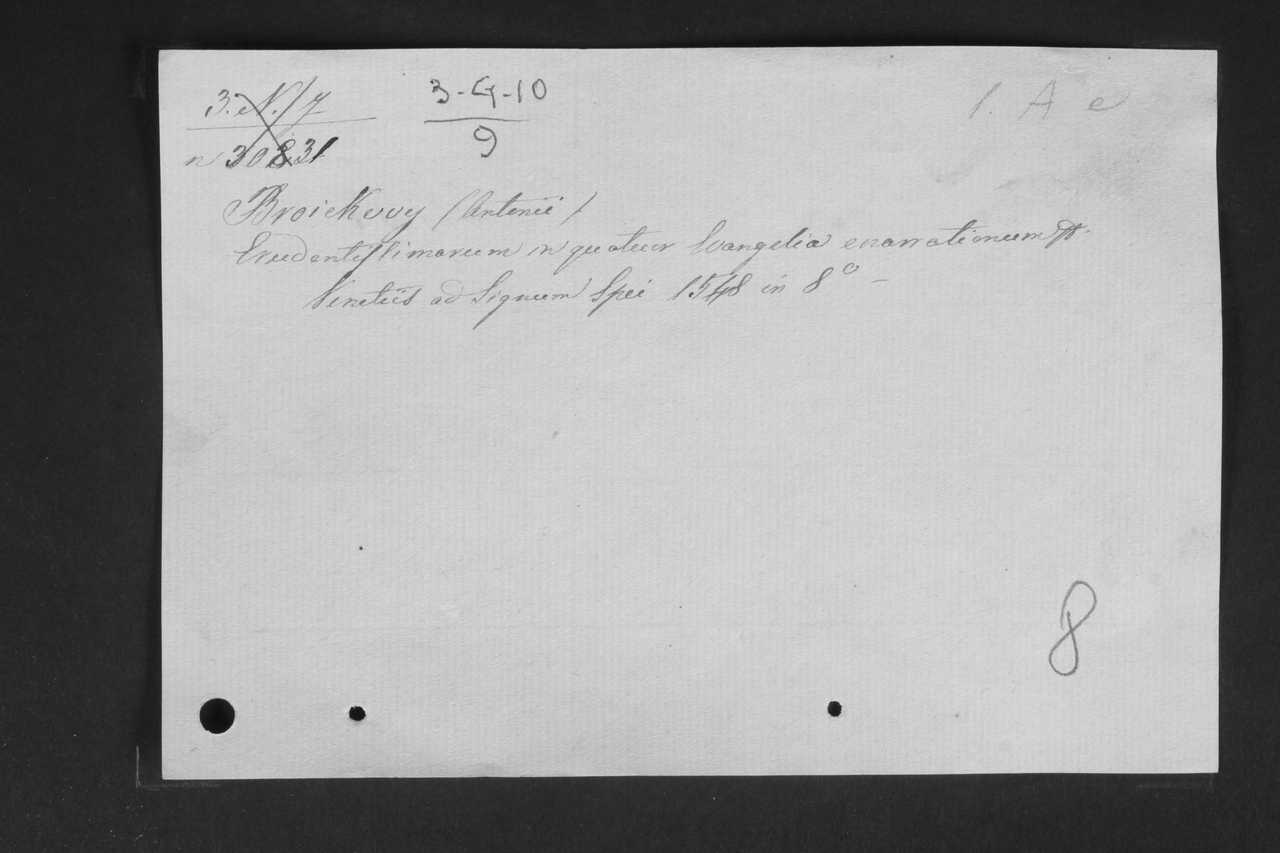 3. N./7
n 30831
3-G-10
9
1. A e
Broickwy (Antonii)
Erudentissimarum in quatuor Evangelia enarrationum
Venetiis ad Signum Spei 1548 in 8º –
8